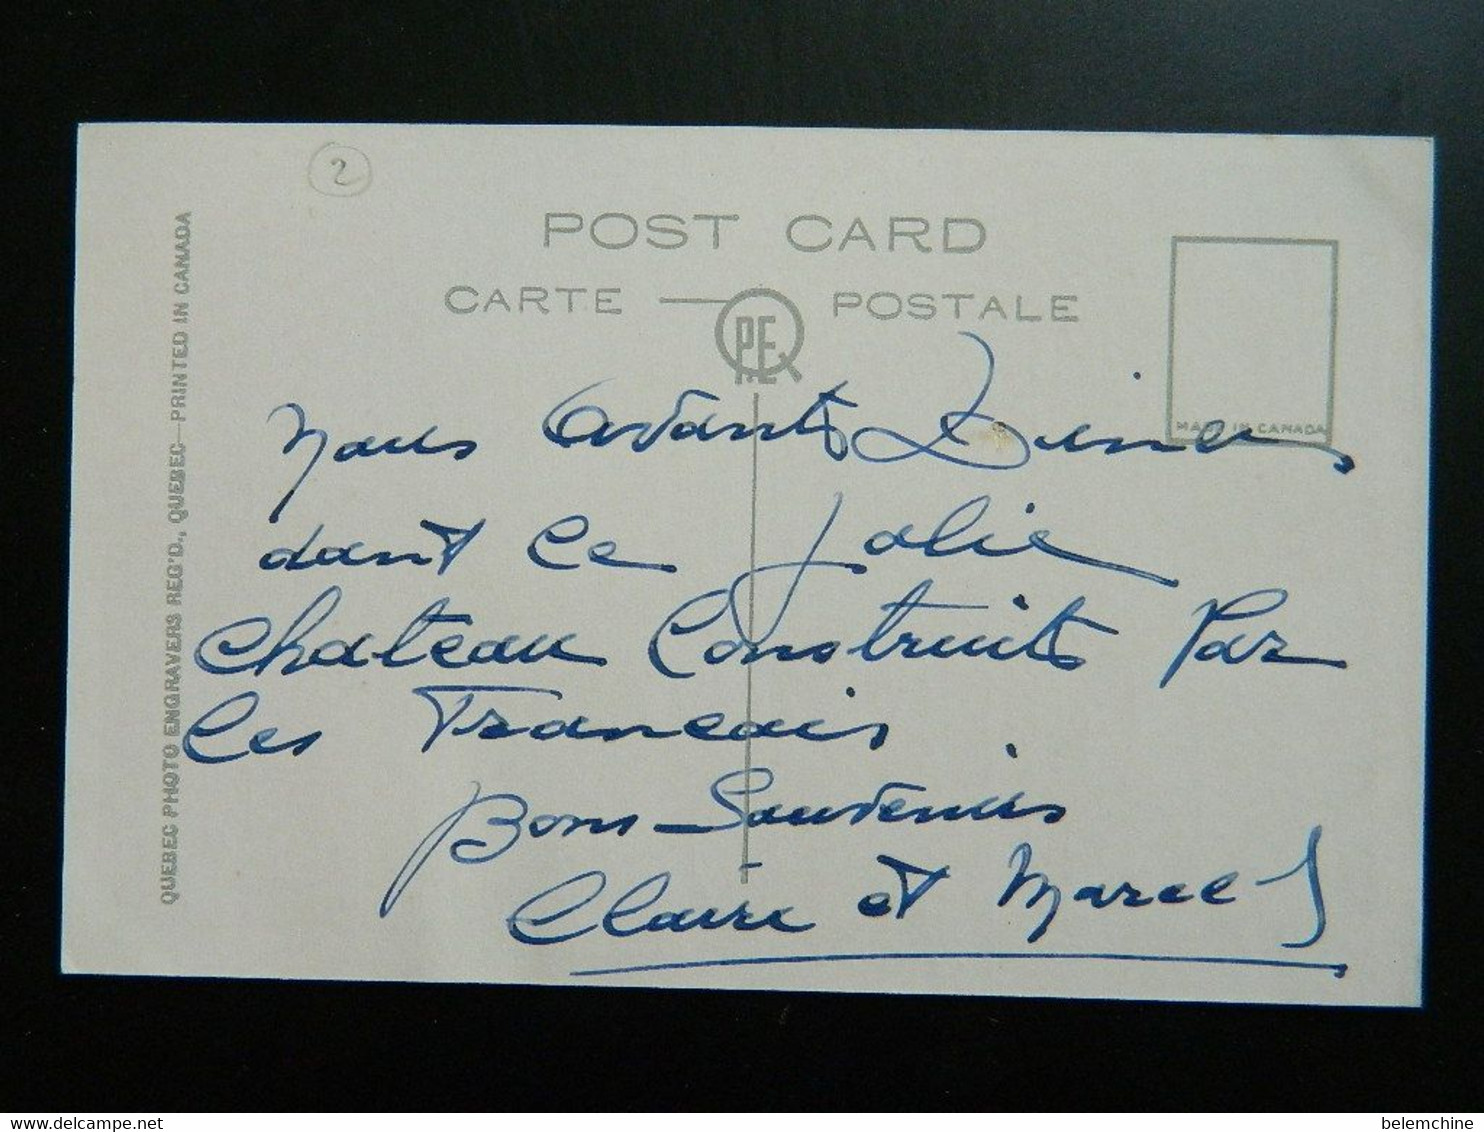 2
POST CARD
CARTE POSTALE
P.E.Q
MADE IN CANADA
QUEBEC PHOTO ENGRAVERS REG'D., QUEBEC—PRINTED IN CANADA
Nous avants Diner
dant ce Jolie
chateau Construits Par
les Francais
Bons Souvenirs
Claire et Marcel
delcampe.net
belemchine